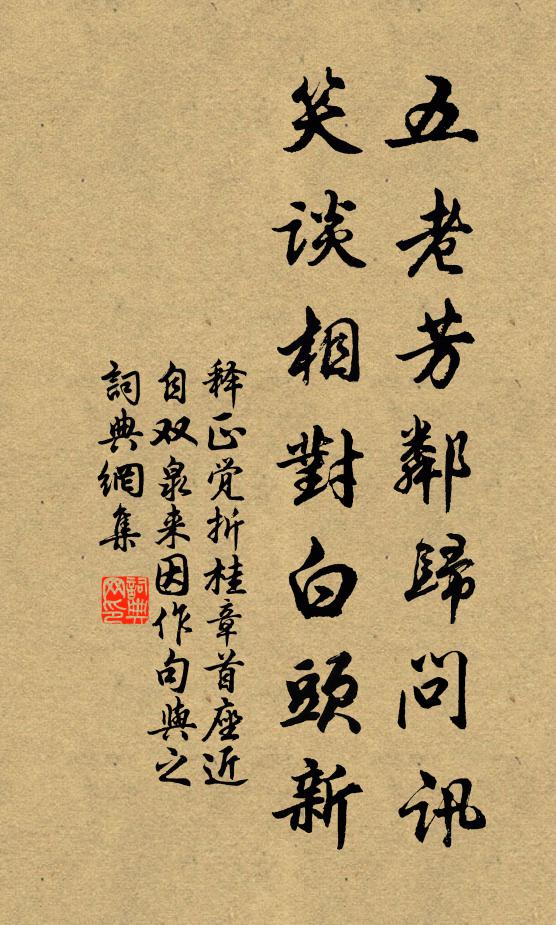 五老芳鄰歸問訊
笑談相對白頭新
释正觉折桂章首座近
自双泉来因作句與之
詞典網集
詞典网印